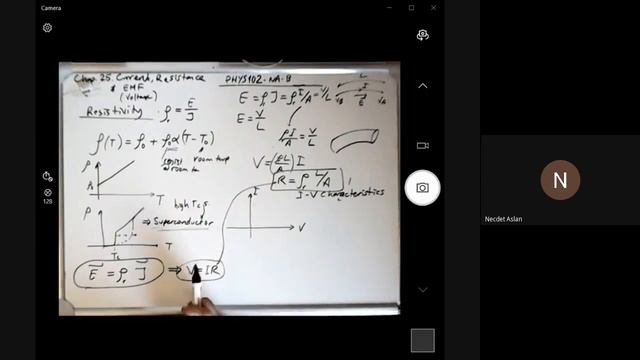 Camera
Chap 25. Current, Resistance
& EMF
(Voltage)
PHYS102-NA-B
Resistivity ρ = E/J
E = ρJ = ρ I/A = V/L
E = V/L
L
V_B E V_A
ρI/A = V/L
ρ(T) = ρ₀ + ρ₀α(T-T₀)
room temp
V = (ρL/A) I
R = ρ L/A
I-V Characteristics
ρ
ρ₀
T
I
V
ρ
high Tc's
⇒ Superconductor
Tc
T
E = ρ J ⇒ V = IR
128
N
Necdet Aslan